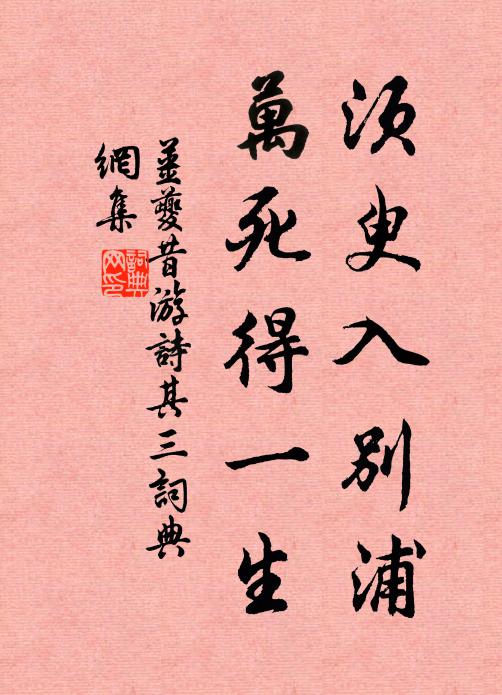 須臾入別浦
萬死得一生
姜夔昔游詩其三詞典
網集
詞典
网印